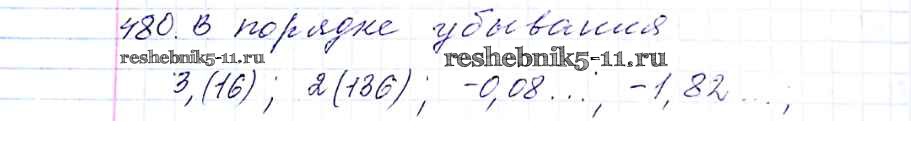 480. В порядке убывания
reshebnik5-11.ru reshebnik5-11.ru
3,(16); 2(136); -0,08...; -1,82...;